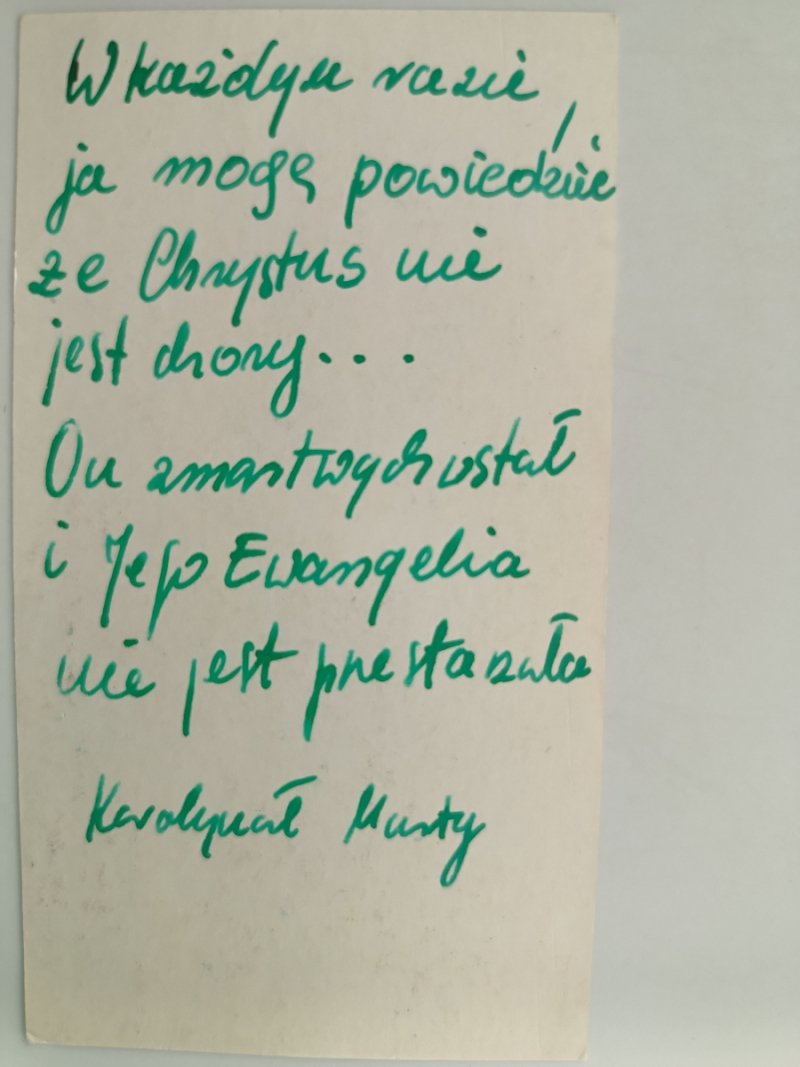 W każdym razie,
ja mogę powiedzieć
że Chrystus nie
jest chory...
On zmartwychwstał
i Jego Ewangelia
nie jest przestarzała
Kardynał Marty